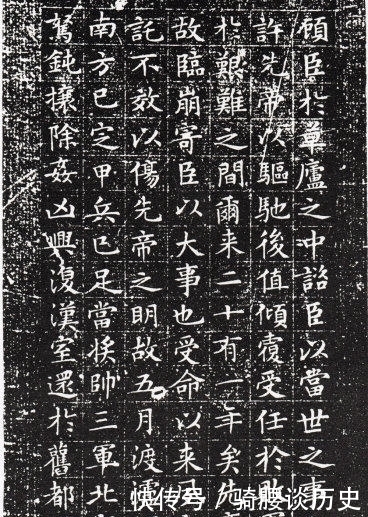 顧臣於草廬之中諮臣以當世之事
許先帝以驅馳後值傾覆受任於敗
於艱難之間爾来二十有一年矣先
故臨崩寄臣以大事也受命以来夙
託不效以傷先帝之明故五月渡瀘
南方已定甲兵已足當獎帥三軍北
駑鈍攘除姦凶興復漢室還於舊都
快传号 / 骑谈历史